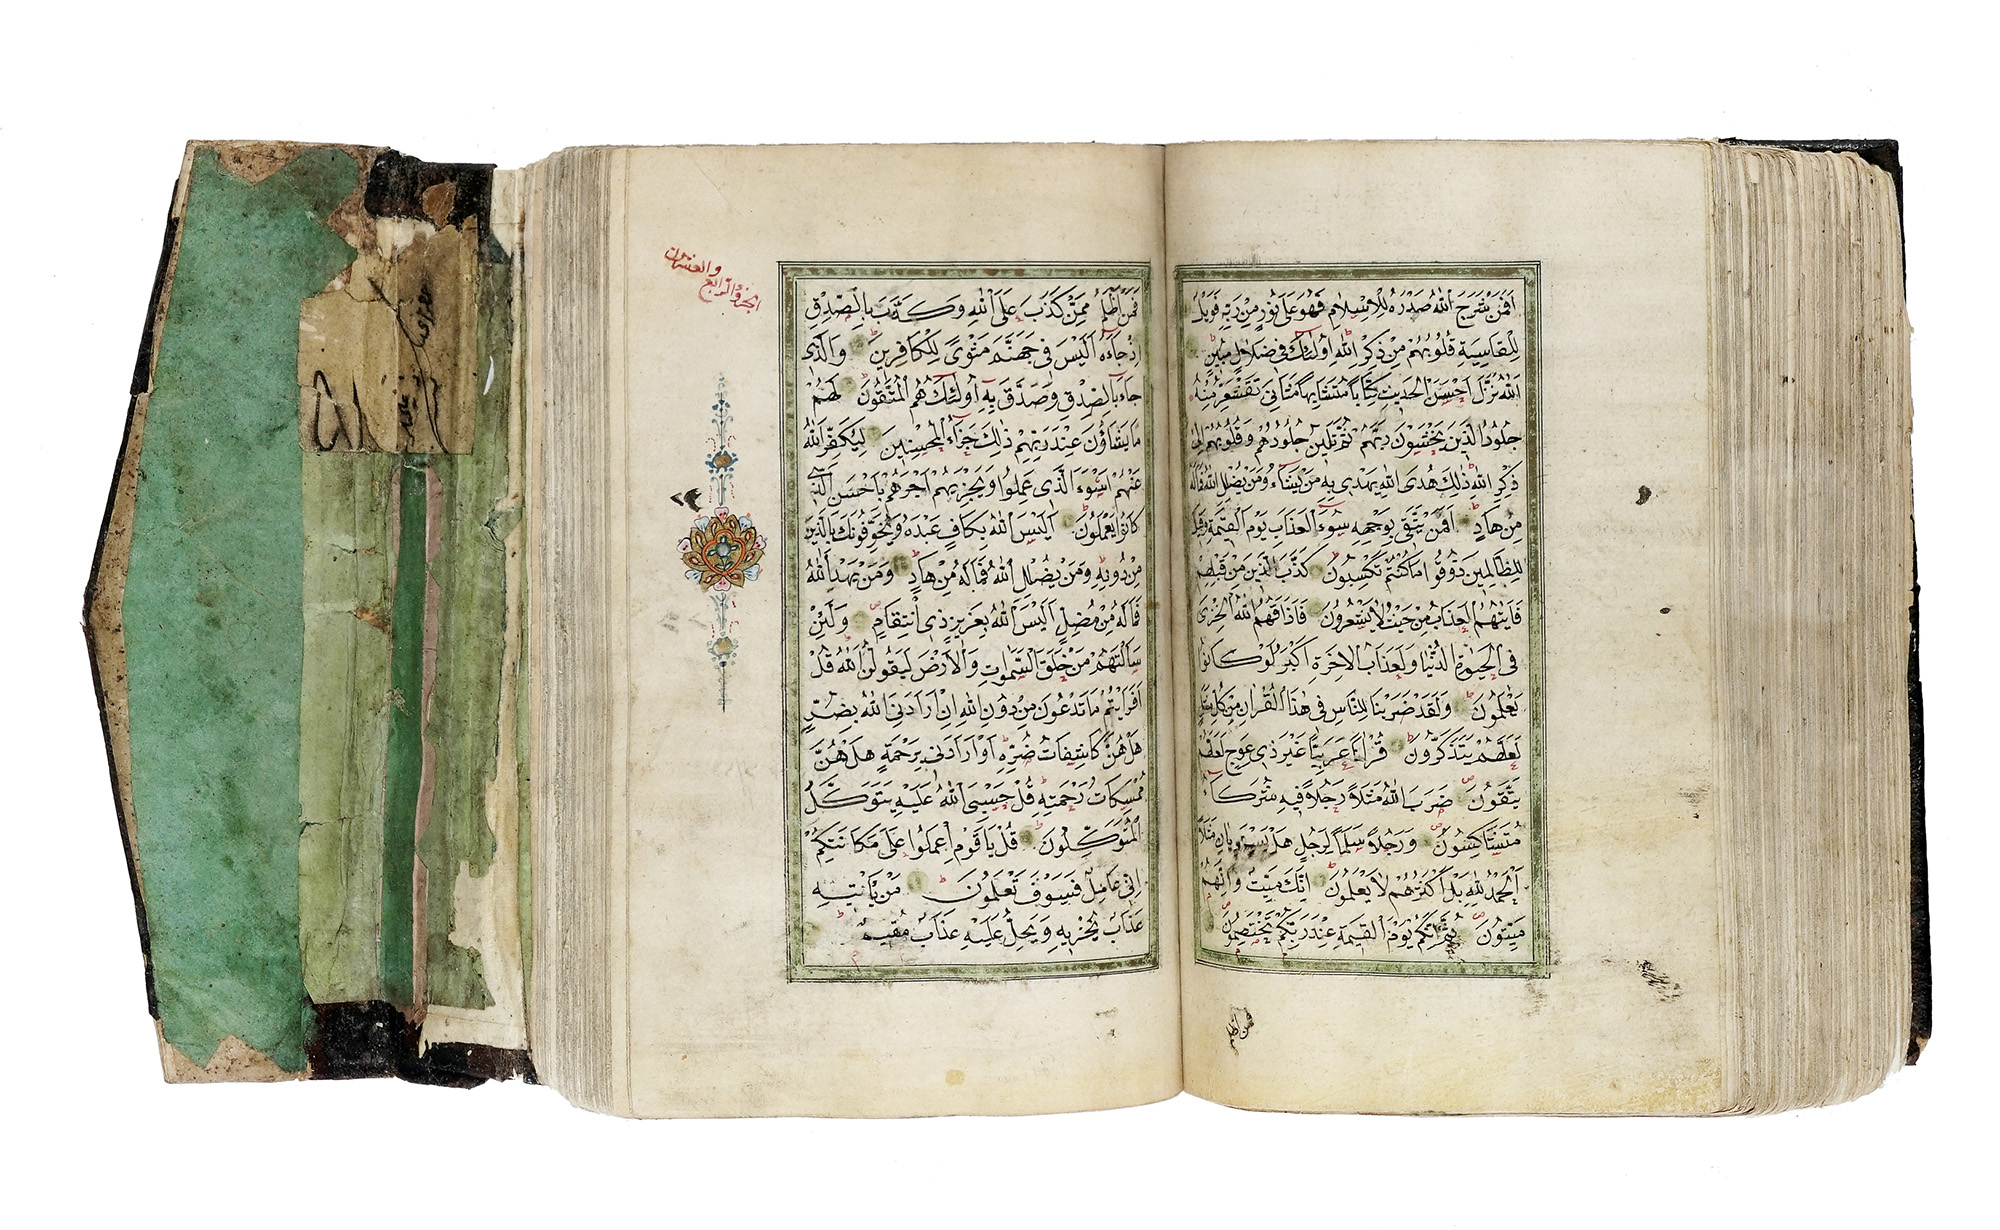 اَفَمَنْ شَرَحَ اللهُ صَدْرَهُ لِلْاِسْلَامِ فَهُوَ عَلَى نُورٍ مِنْ رَبِّهِ فَوَيْلٌ
لِلْقَاسِيَةِ قُلُوبُهُمْ مِنْ ذِكْرِ اللهِ اُولٰئِكَ فِى ضَلَالٍ مُبِينٍ
اَللهُ نَزَّلَ اَحْسَنَ الْحَدِيثِ كِتَابًا مُتَشَابِهًا مَثَانِىَ تَقْشَعِرُّ مِنْهُ
جُلُودُ الَّذِينَ يَخْشَوْنَ رَبَّهُمْ ثُمَّ تَلِينُ جُلُودُهُمْ وَقُلُوبُهُمْ اِلَى
ذِكْرِ اللهِ ذٰلِكَ هُدَى اللهِ يَهْدِى بِهِ مَنْ يَشَاءُ وَمَنْ يُضْلِلِ اللهُ فَمَا لَهُ
مِنْ هَادٍ اَفَمَنْ يَتَّقِى بِوَجْهِهِ سُوءَ الْعَذَابِ يَوْمَ الْقِيٰمَةِ وَقِيلَ
لِلظَّالِمِينَ ذُوقُوا مَا كُنْتُمْ تَكْسِبُونَ كَذَّبَ الَّذِينَ مِنْ قَبْلِهِمْ
فَاَتٰيهُمُ الْعَذَابُ مِنْ حَيْثُ لَا يَشْعُرُونَ فَاَذَاقَهُمُ اللهُ الْخِزْىَ
فِى الْحَيٰوةِ الدُّنْيَا وَلَعَذَابُ الْاٰخِرَةِ اَكْبَرُ لَوْ كَانُوا
يَعْلَمُونَ وَلَقَدْ ضَرَبْنَا لِلنَّاسِ فِى هٰذَا الْقُرْاٰنِ مِنْ كُلِّ مَثَلٍ
لَعَلَّهُمْ يَتَذَكَّرُونَ قُرْاٰنًا عَرَبِيًّا غَيْرَ ذِى عِوَجٍ لَعَلَّهُمْ
يَتَّقُونَ ضَرَبَ اللهُ مَثَلًا رَجُلًا فِيهِ شُرَكَاءُ
مُتَشَاكِسُونَ وَرَجُلًا سَلَمًا لِرَجُلٍ هَلْ يَسْتَوِيَانِ مَثَلًا
اَلْحَمْدُ لِلّٰهِ بَلْ اَكْثَرُهُمْ لَا يَعْلَمُونَ اِنَّكَ مَيِّتٌ وَاِنَّهُمْ
مَيِّتُونَ ثُمَّ اِنَّكُمْ يَوْمَ الْقِيٰمَةِ عِنْدَ رَبِّكُمْ تَخْتَصِمُونَ
فمن اظلم
الجزؤ الرابع
والعشرون
فَمَنْ اَظْلَمُ مِمَّنْ كَذَبَ عَلَى اللهِ وَكَذَّبَ بِالصِّدْقِ
اِذْ جَاءَهُ اَلَيْسَ فِى جَهَنَّمَ مَثْوًى لِلْكَافِرِينَ وَالَّذِى
جَاءَ بِالصِّدْقِ وَصَدَّقَ بِهِ اُولٰئِكَ هُمُ الْمُتَّقُونَ لَهُمْ
مَا يَشَاؤُنَ عِنْدَ رَبِّهِمْ ذٰلِكَ جَزَاءُ الْمُحْسِنِينَ لِيُكَفِّرَ اللهُ
عَنْهُمْ اَسْوَءَ الَّذِى عَمِلُوا وَيَجْزِيَهُمْ اَجْرَهُمْ بِاَحْسَنِ الَّذِى
كَانُوا يَعْمَلُونَ اَلَيْسَ اللهُ بِكَافٍ عَبْدَهُ وَيُخَوِّفُونَكَ بِالَّذِينَ
مِنْ دُونِهِ وَمَنْ يُضْلِلِ اللهُ فَمَا لَهُ مِنْ هَادٍ وَمَنْ يَهْدِ اللهُ
فَمَا لَهُ مِنْ مُضِلٍّ اَلَيْسَ اللهُ بِعَزِيزٍ ذِى انْتِقَامٍ وَلَئِنْ
سَاَلْتَهُمْ مَنْ خَلَقَ السَّمٰوَاتِ وَالْاَرْضَ لَيَقُولُنَّ اللهُ قُلْ
اَفَرَاَيْتُمْ مَا تَدْعُونَ مِنْ دُونِ اللهِ اِنْ اَرَادَنِىَ اللهُ بِضُرٍّ
هَلْ هُنَّ كَاشِفَاتُ ضُرِّهِ اَوْ اَرَادَنِى بِرَحْمَةٍ هَلْ هُنَّ
مُمْسِكَاتُ رَحْمَتِهِ قُلْ حَسْبِىَ اللهُ عَلَيْهِ يَتَوَكَّلُ
الْمُتَوَكِّلُونَ قُلْ يَا قَوْمِ اعْمَلُوا عَلَى مَكَانَتِكُمْ
اِنِّى عَامِلٌ فَسَوْفَ تَعْلَمُونَ مَنْ يَاْتِيهِ
عَذَابٌ يُخْزِيهِ وَيَحِلُّ عَلَيْهِ عَذَابٌ مُقِيمٌ